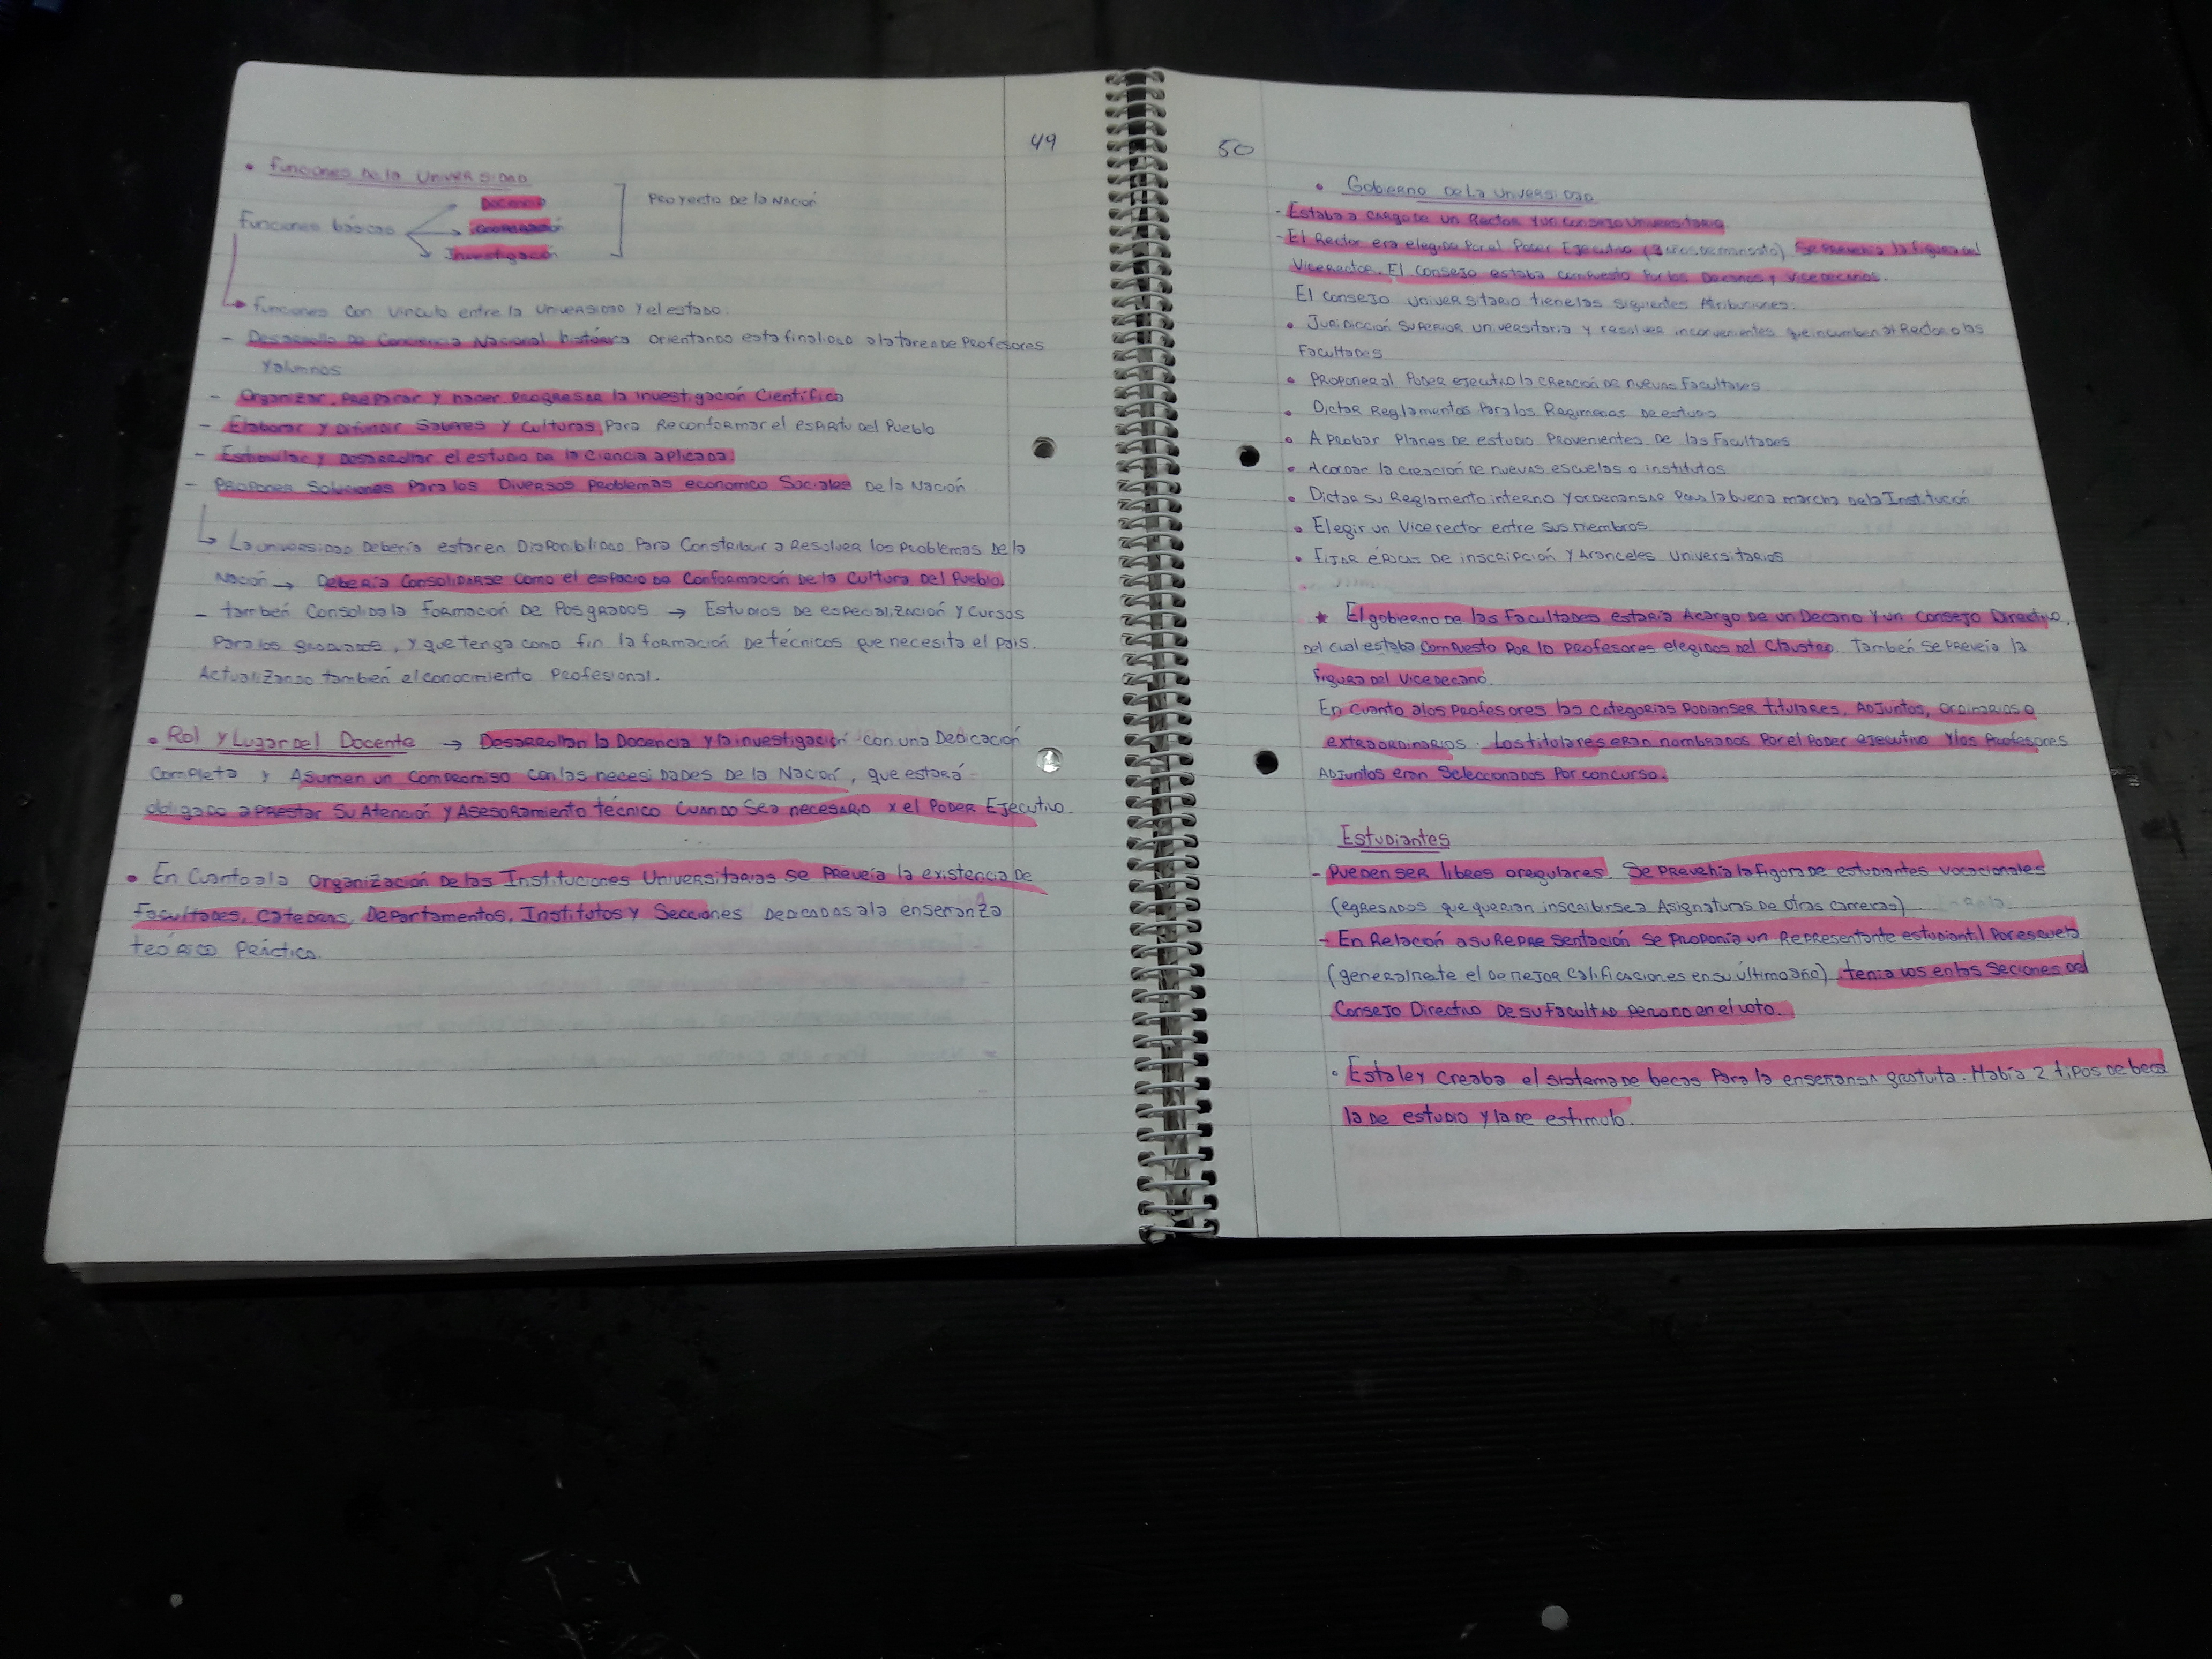 49
• Funciones De la Universidad
Docencia
Funciones básicas
Investigación
Proyecto De la Nación
Funciones con vinculo entre la Universidad y el estado.
- Desarrollo De Conciencia Nacional histórica orientando esta finalidad a la tarea De Profesores
y alumnos
- Organizar, preparar y hacer progresar la investigación Científica
- Elaborar y Difundir Saberes y Culturas Para Reconformar el espiritu Del Pueblo
- Estimular y Desarrollar el estudio De la Ciencia aplicada.
- Proponer Soluciones Para los Diversos Problemas economico Sociales De la Nación
La universidad Debería estar en Disponibilidad Para Constribuir a Resolver los Problemas De la
Nación → Debería Consolidarse como el espacio De Conformación De la Cultura Del Pueblo.
- tambeń Consolida la formación De Posgrados → Estudios De especialización y Cursos
Para los graduados, y que tenga como fin la formación De técnicos que necesita el país.
Actualizando tambeń el conocimiento Profesional.
• Rol y Lugar Del Docente → Desarrollan la Docencia y la investigación con una Dedicación
Completa y Asumen un Compromiso con las necesidades De la Nación, que estará
obligado a prestar Su Atención y Asesoramiento técnico Cuando Sea necesario x el Poder Ejecutivo.
• En Cuanto a la Organización De las Instituciones Universitarias Se Preveía la existencia De
Facultades, Catedras, Departamentos, Institutos y Secciones Dedicadas a la enseñanza
teórico Práctica.
50
• Gobierno De La Universidad
- Estaba a cargo de un Rector y un Consejo Universitario
- El Rector era elegido Por el Poder Ejecutivo (3 años de mandato). Se Prevehia la figura del
Vicerector. El Consejo estaba compuesto Por los Decanos y Vicedecanos.
El Consejo Universitario tiene las siguientes Atribuciones:
• Juridicción Superior universitaria y resolver inconvenientes que incumben al Rector o las
Facultades
• Proponer al Poder ejecutivo la Creación De nuevas Facultades
• Dictar Reglamentos Para los Regimenes De estudio
• Aprobar Planes De estudio Provenientes De las Facultades
• Acordar la creación De nuevas escuelas o institutos
• Dictar su Reglamento interno y ordenansas Para la buena marcha de la Institución
• Elegir un Vicerector entre sus miembros
• Fijar épocas De inscripción y Aranceles Universitarios
★ El gobierno De las Facultades estaría Acargo De un Decano y un Consejo Directivo,
Del cual estaba Compuesto Por 10 Profesores elegidos Del Claustro. Tambeń Se Preveía la
figura Del Vicedecano.
En Cuanto a los Profesores las Categorias Podian ser titulares, Adjuntos, ordinarios o
extraordinarios. Los titulares eran nombrados Por el Poder ejecutivo y los Profesores
Adjuntos eran Seleccionados Por concurso.
Estudiantes
- Pueden ser libres o regulares. Se prevehia la figura De estudiantes vocacionales
(egresados que querian inscribirse a Asignaturas De otras carreras)
- En Relación a su Representación Se Proponia un Representante estudiantil Por escuela
(generalmente el De mejor Calificaciones en su último año) tenia vos en las Seciones Del
Consejo Directivo De su facultad pero no en el voto.
• Esta ley creaba el sistema De becas Para la enseñansa gratuita. Había 2 tipos De beca
la De estudio y la De estimulo.